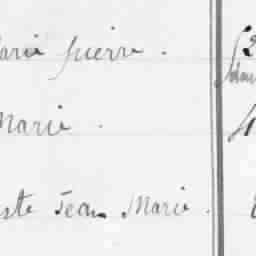 arie pierre .
Marie .
ste Jean Marie .